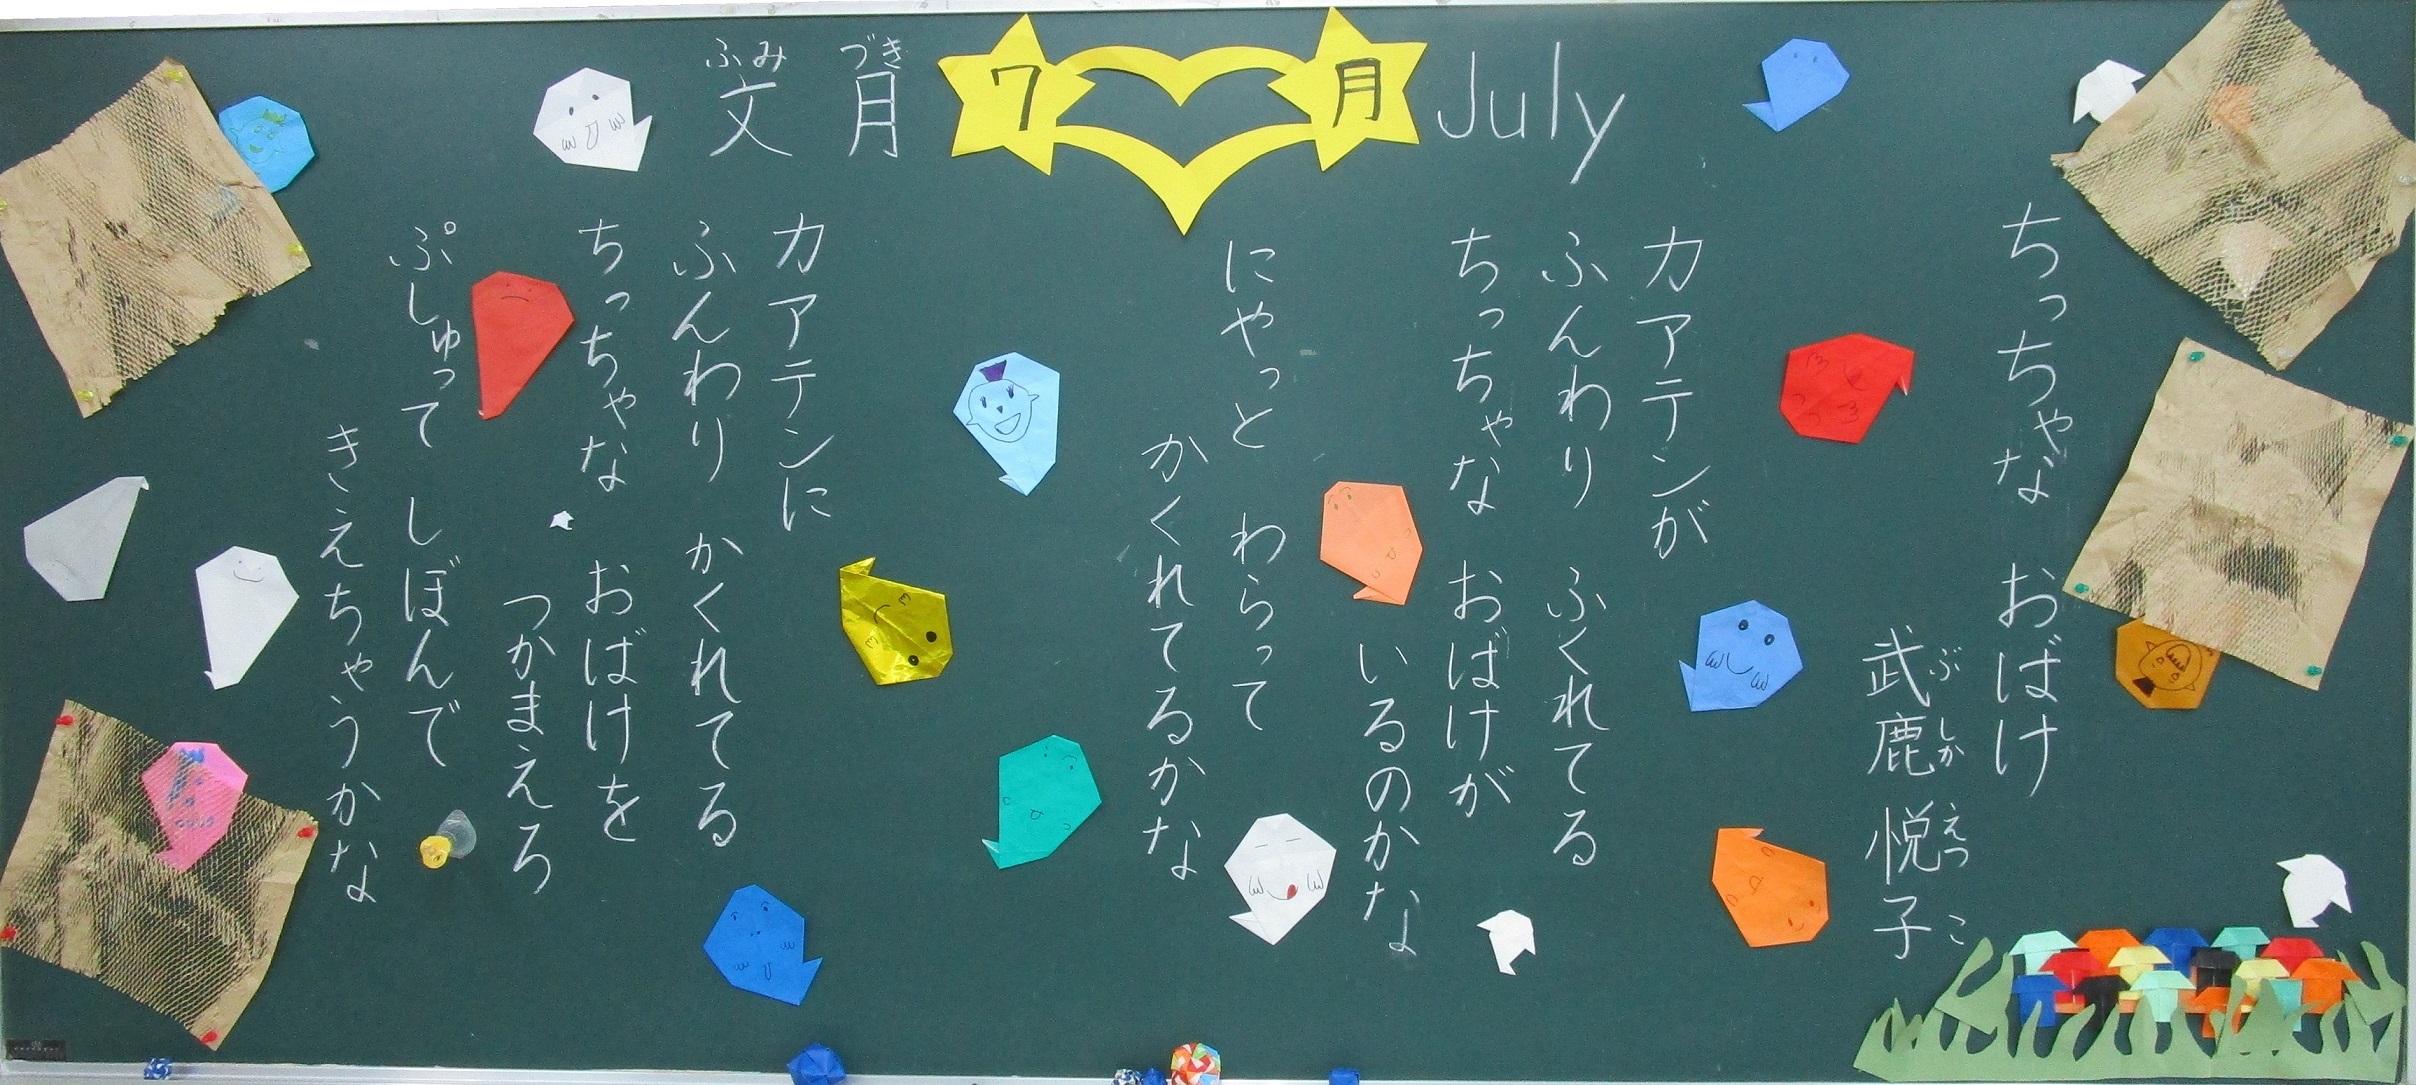 文月 7月 July
ふみ づき
ちっちゃな おばけ
武鹿 悦子
ぶしか えつこ
カアテンが
ふんわり ふくれてる
ちっちゃな おばけが
いるのかな
にやっと わらって
かくれてるかな
カアテンに
ふんわり かくれてる
ちっちゃな おばけを
つかまえろ
ぷしゅって しぼんで
きえちゃうかな